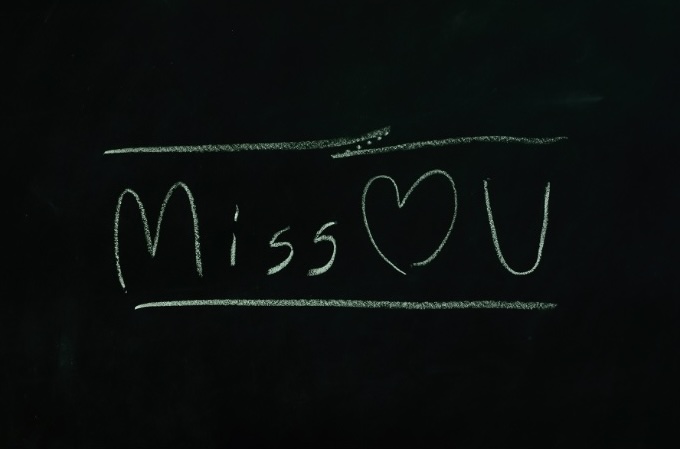 Miss ♡ U